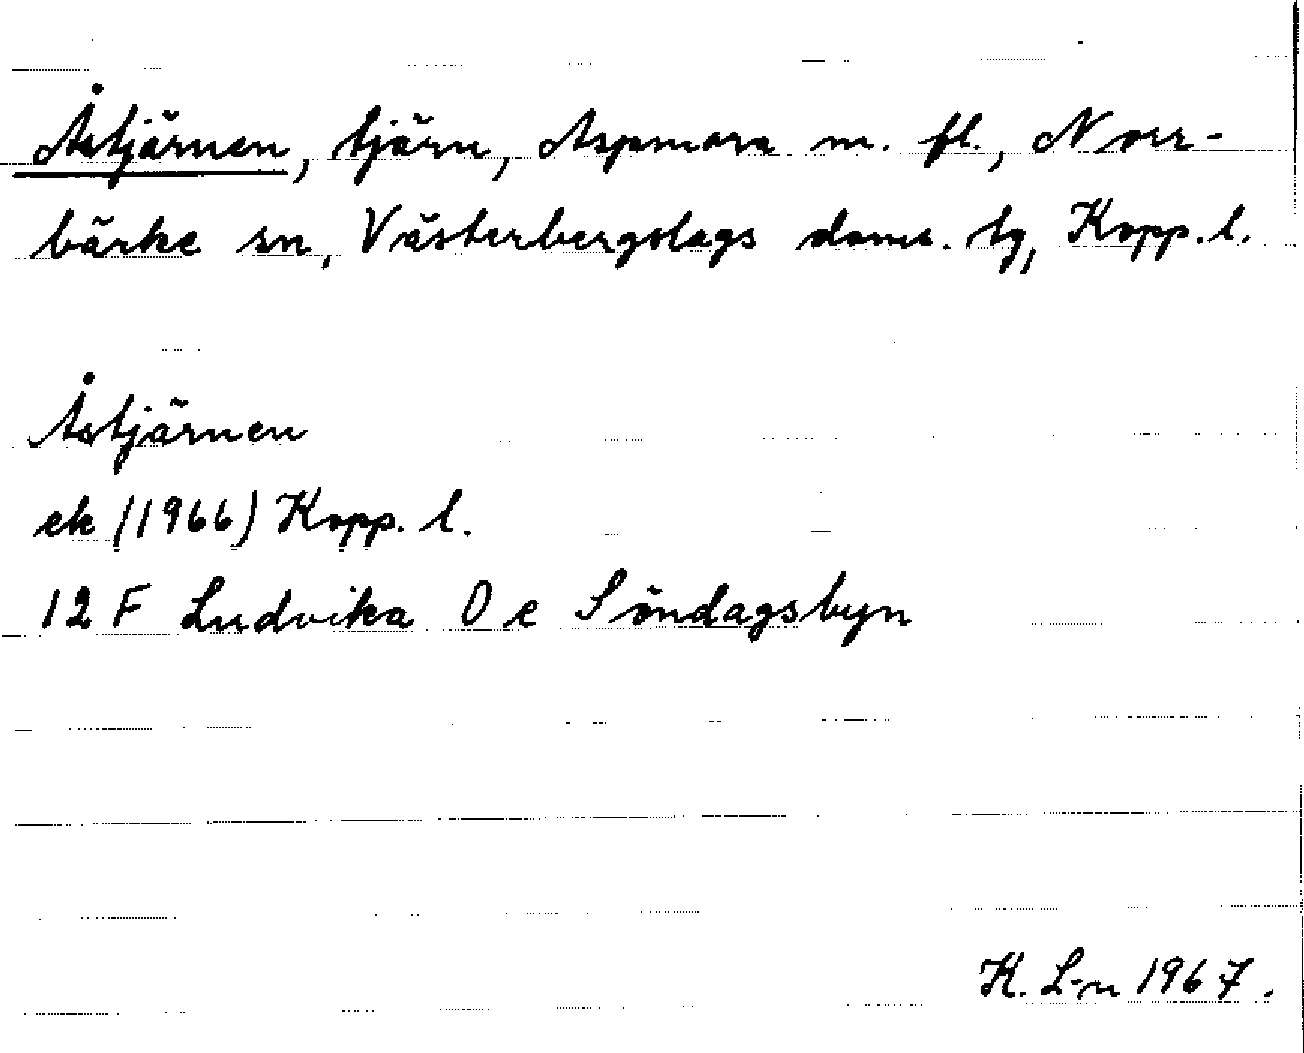 Åstjärnen, tjärn, Aspmora m. fl., Norr-
bärke sn, Västerbergslags doms. tg, Kopp. l.
Åstjärnen
ek (1966) Kopp. l.
12 F Ludvika 0 e Söndagsbyn
K. L-n 1967.